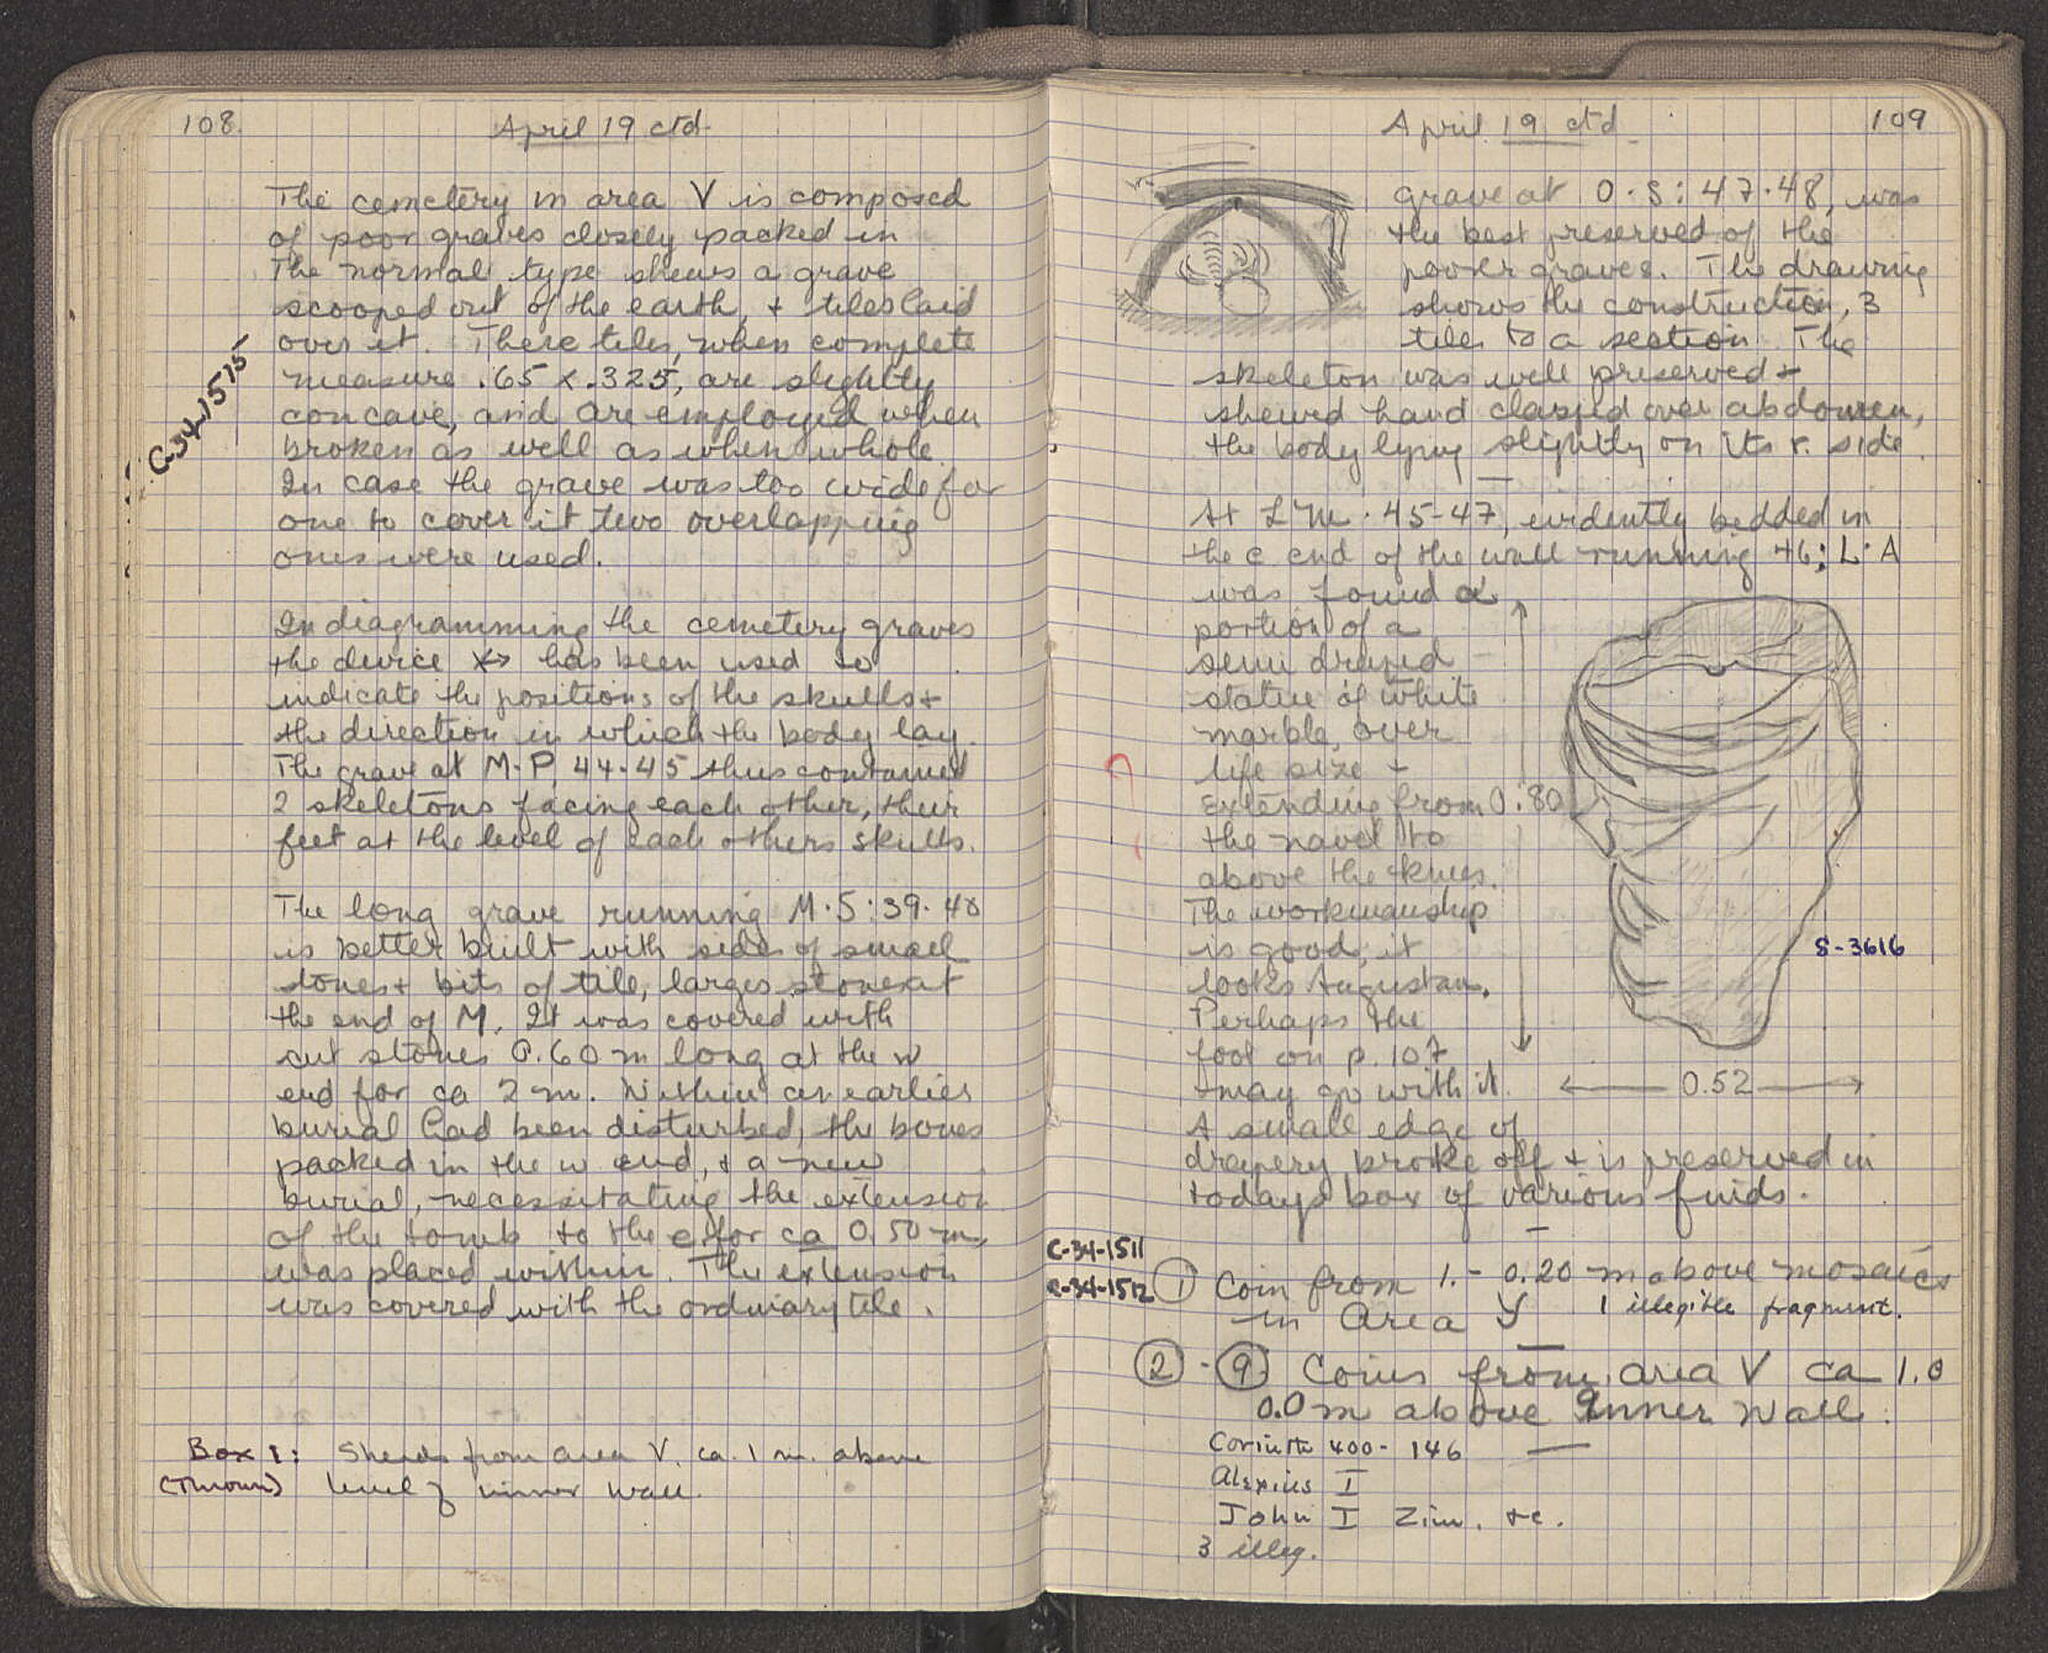 108.
April 19 ctd.
The cemetery in area V is composed
of poor graves closely packed in
The normal type shews a grave
scooped out of the earth, + tiles laid
over it. These tiles, when complete
measure .65 x .325, are slightly
concave, and are employed when
broken as well as when whole.
In case the grave was too wide for
one to cover it two overlapping
ones were used.
C-34-1515
In diagramming the cemetery graves
the device x→ has been used to
indicate the positions of the skulls +
the direction in which the body lay.
The grave at M-P, 44-45 thus contained
2 skeletons facing each other, their
feet at the level of each others skulls.
The long grave running M-S:39-48
is better built with sides of small
stones + bits of tile, larges stones at
the end of M. It was covered with
cut stones 0.60 m long at the w
end for ca 2 m. Within an earlier
burial had been disturbed, the bones
packed in the w end, + a new
burial, necessitating the extension
of the tomb to the e. for ca 0.50 m,
was placed within. The extension
was covered with the ordinary tile.
Box 1: Sherds from area V. ca. 1 m. above
(Thrown) level of inner wall.
April 19 ctd
109
grave at O-S:47-48, was
the best preserved of the
poorer graves. The drawing
shows the construction, 3
tiles to a section. The
skeleton was well preserved +
shewed hand clasped over abdomen,
the body lying slightly on its r. side.
At L-M-45-47, evidently bedded in
the e end of the wall running 46:L-A
was found a
portion of a
semi draped
statue of white
marble, over
life size -
extending from
the navel to
above the knees.
The workmanship
is good, it
looks Augustan.
Perhaps the
foot on p. 107
may go with it.
0.80
S-3616
0.52
A small edge of
drapery broke off + is preserved in
todays box of various finds.
C-34-1511
C-34-1512
① Coin from 1.- 0.20 m above mosaics
in Area Y 1 illegible fragment.
② - ⑨ Coins from area V ca 1.0
0.0 m above Inner Wall.
Corinth 400-146
Alexius I
John I Zim. +c.
3 illeg.